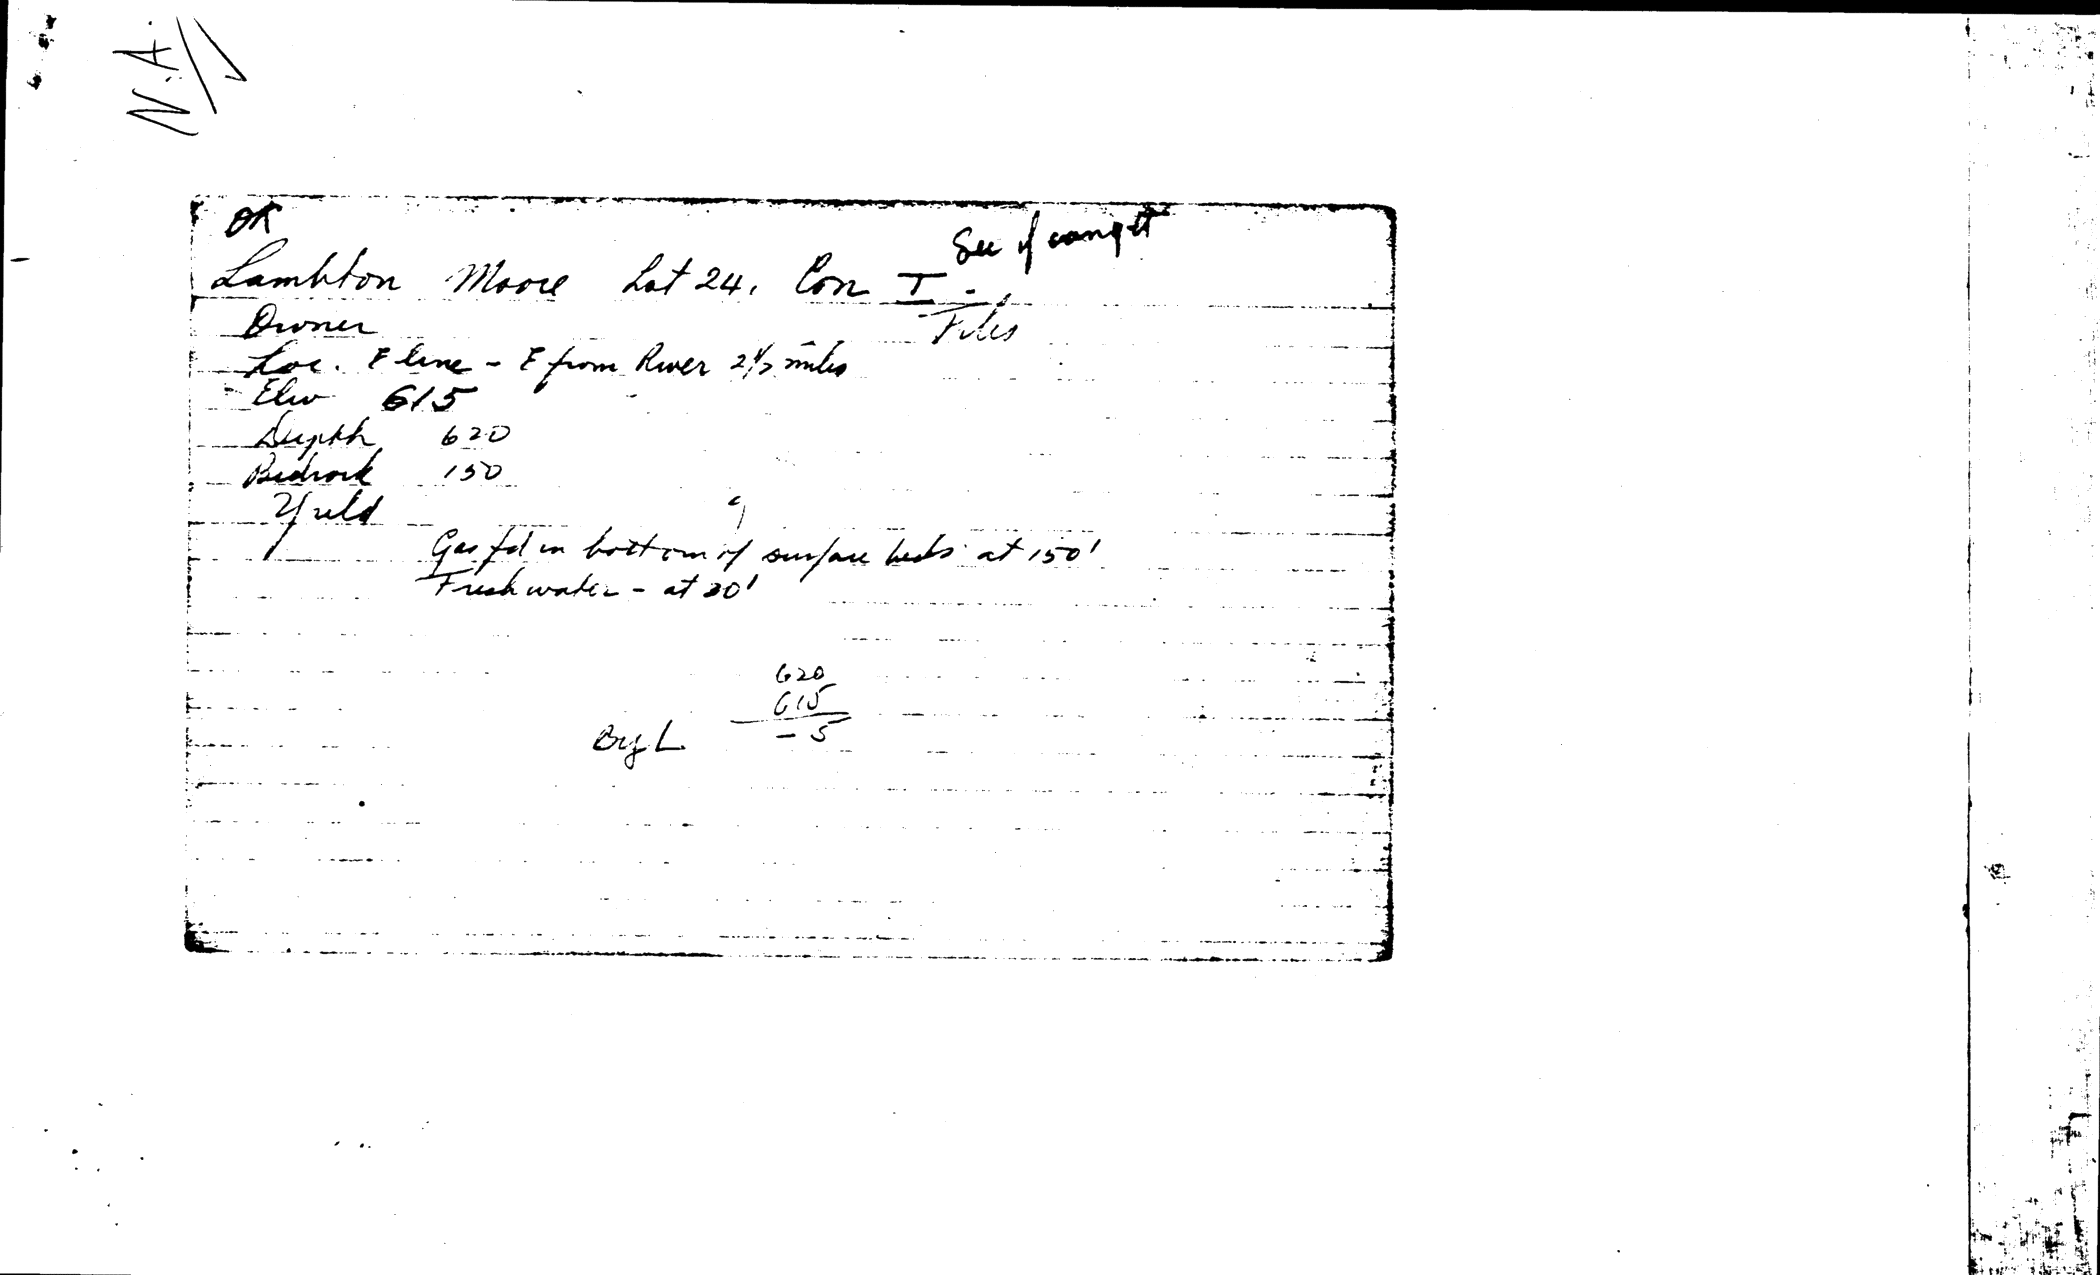 N.A.
OK
See if can get
Lambton Moore Lot 24, Con I -
Files
Owner
Loc. E line - E from River 2 1/2 miles
Elev 615
Depth 620
Bedrock 150
Yield
Gas fd in bottom of surface beds at 150'
Fresh water - at 20'
620
615
- 5
By L